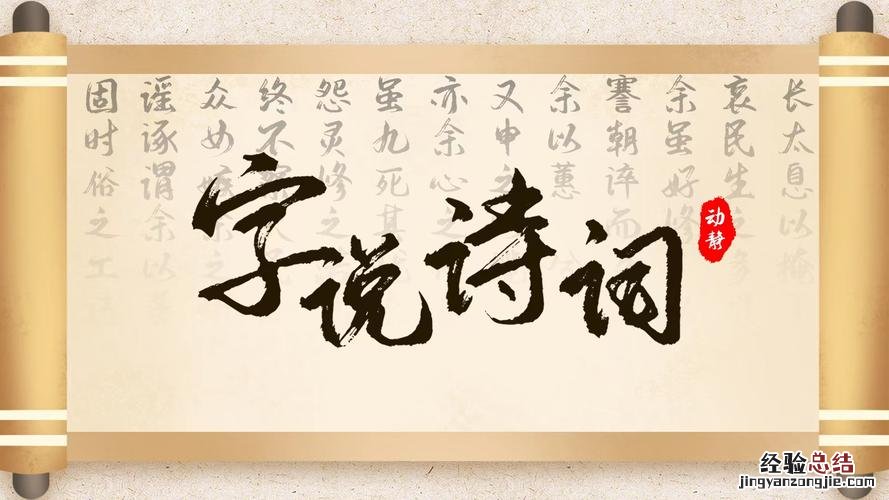 字说诗词
动静
长太息以掩
哀民生之多
余虽好修
謇朝谇而
余以蕙
又申之
亦余心之
虽九死其
怨灵修之
终不
众女嫉余之
谣诼谓余以善
固时俗之工
经验总结
jingyanzongjie.com